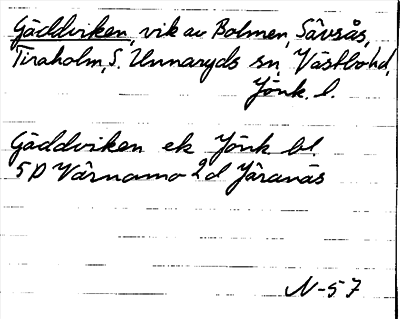 Gäddviken, vik av Bolmen, Såvsås,
Tiraholm, S. Unnaryds sn Västbo hd,
Jönk. l.
Gäddviken ek Jönk. bl.
5D Värnamo 2d Järanäs
N-57